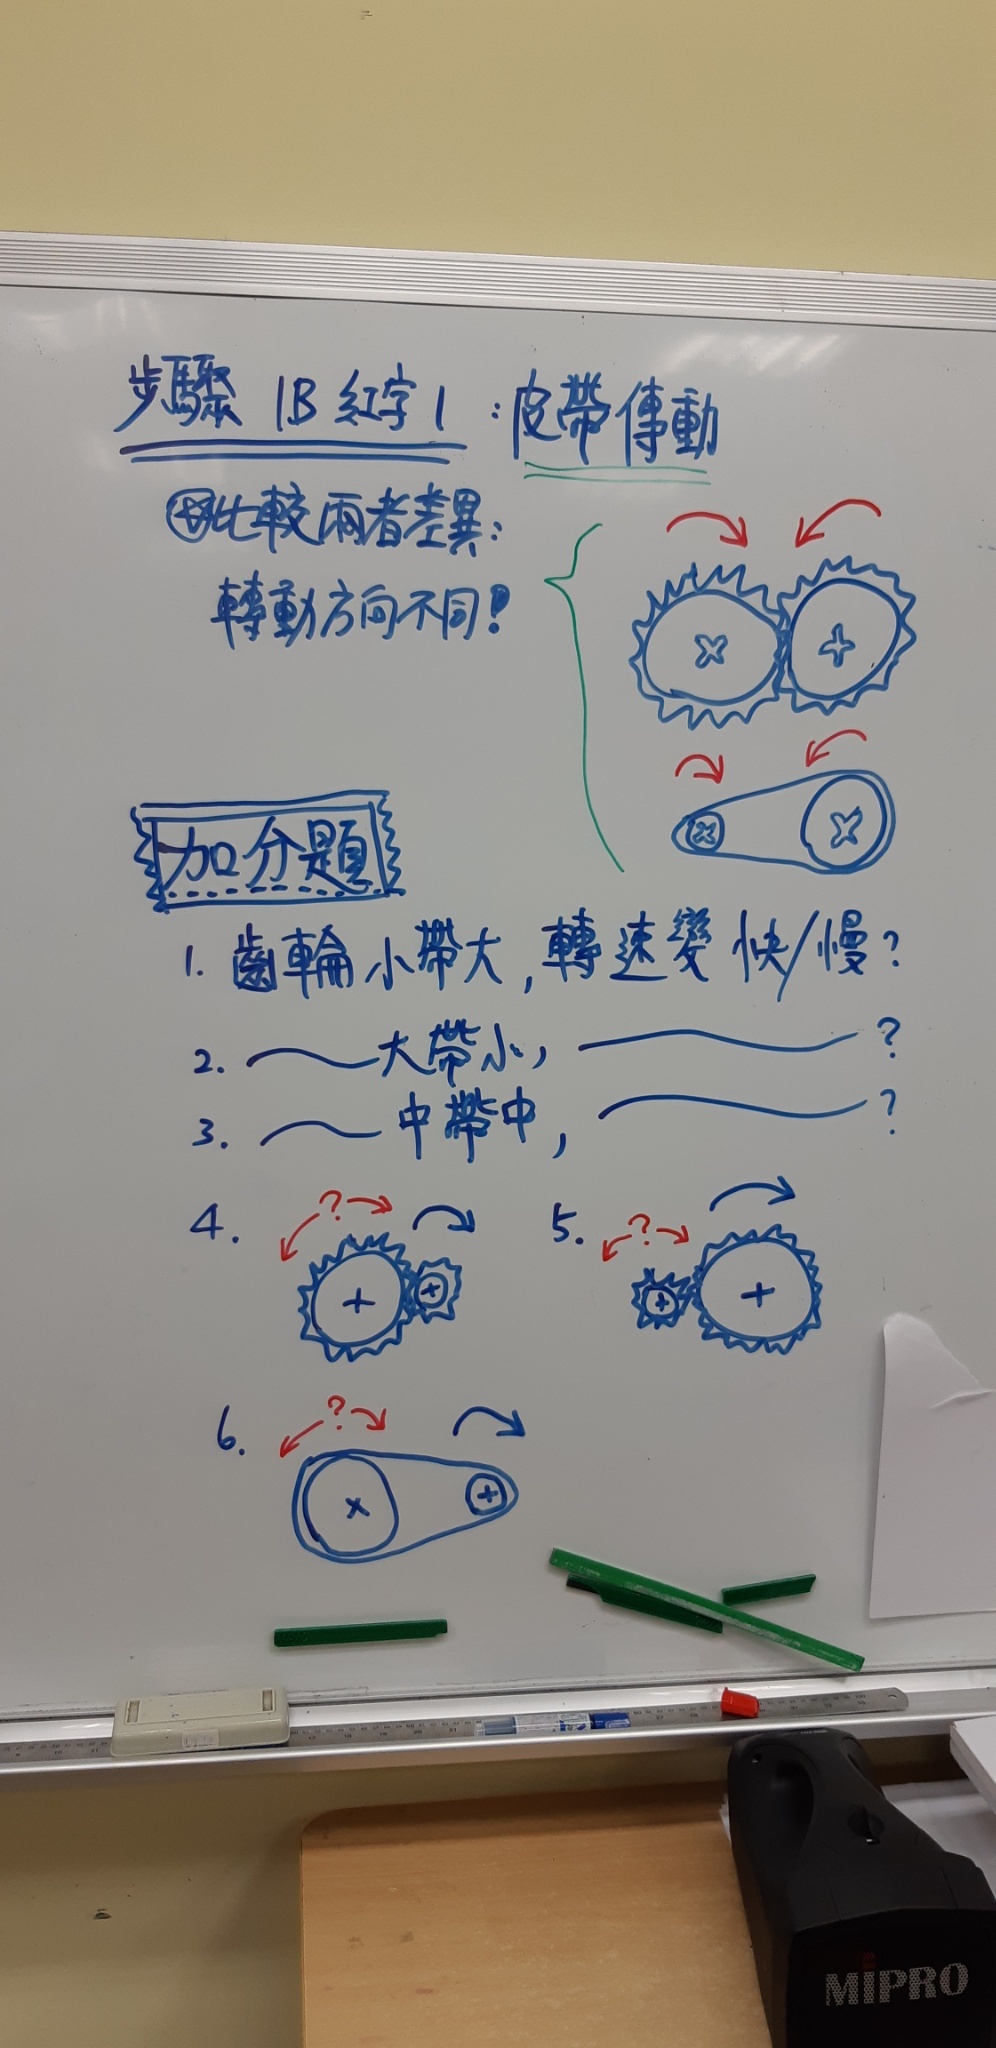 步驟 1B 紅字1:皮帶傳動
比較兩者差異:
轉動方向不同!
加分題
1. 齒輪小帶大,轉速變快/慢?
2. 大帶小, ?
3. 中帶中, ?
4. ?
5. ?
6. ?
MIPRO